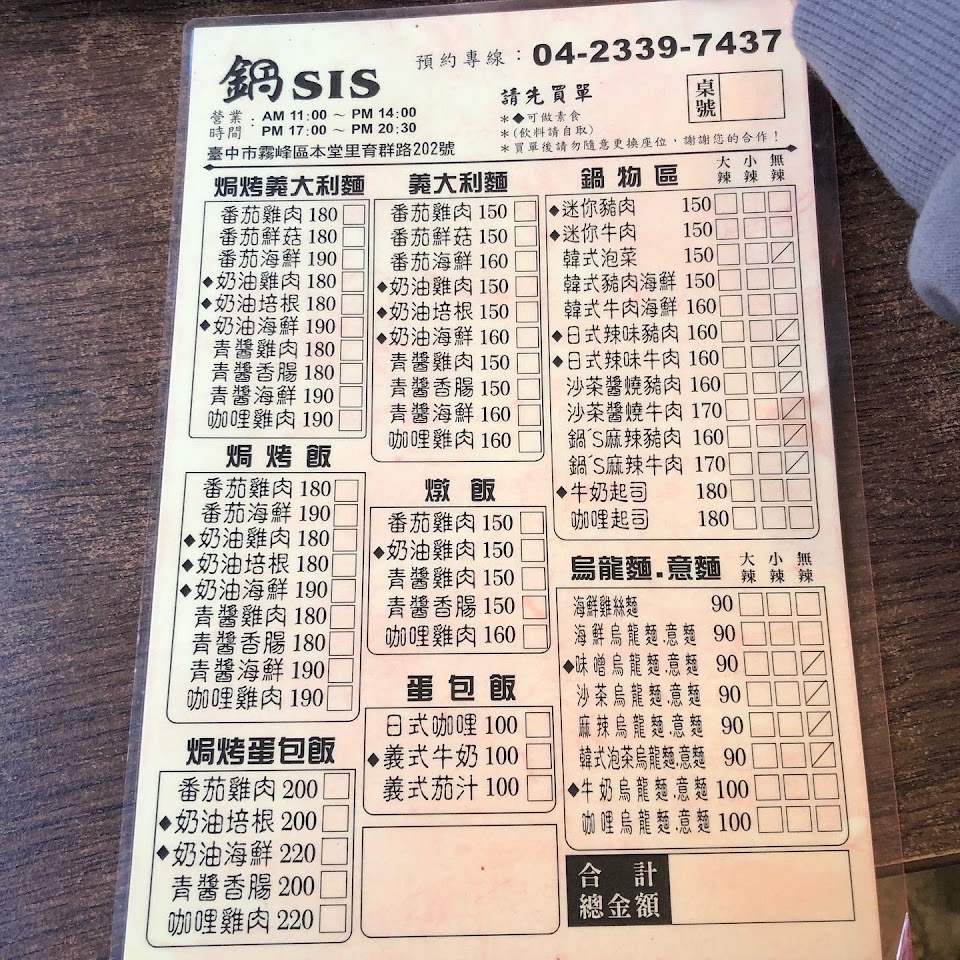 鍋SIS
預約專線：04-2339-7437
營業時間：AM 11:00 ~ PM 14:00
PM 17:00 ~ PM 20:30
臺中市霧峰區本堂里育群路202號
請先買單
＊◆可做素食
＊(飲料請自取)
＊買單後請勿隨意更換座位，謝謝您的合作！
桌號
焗烤義大利麵
番茄雞肉 180
番茄鮮菇 180
番茄海鮮 190
◆奶油雞肉 180
◆奶油培根 180
◆奶油海鮮 190
青醬雞肉 180
青醬香腸 180
青醬海鮮 190
咖哩雞肉 190
焗烤飯
番茄雞肉 180
番茄海鮮 190
◆奶油雞肉 180
◆奶油培根 180
◆奶油海鮮 190
青醬雞肉 180
青醬香腸 180
青醬海鮮 190
咖哩雞肉 190
焗烤蛋包飯
番茄雞肉 200
◆奶油培根 200
◆奶油海鮮 220
青醬香腸 200
咖哩雞肉 220
義大利麵
番茄雞肉 150
番茄鮮菇 150
番茄海鮮 160
◆奶油雞肉 150
◆奶油培根 150
◆奶油海鮮 160
青醬雞肉 150
青醬香腸 150
青醬海鮮 160
咖哩雞肉 160
燉飯
番茄雞肉 150
◆奶油雞肉 150
青醬雞肉 150
青醬香腸 150
咖哩雞肉 160
蛋包飯
日式咖哩 100
◆義式牛奶 100
義式茄汁 100
鍋物區 大辣 小辣 無辣
◆迷你豬肉 150
◆迷你牛肉 150
韓式泡菜 150
韓式豬肉海鮮 150
韓式牛肉海鮮 160
◆日式辣味豬肉 160
◆日式辣味牛肉 160
沙茶醬燒豬肉 160
沙茶醬燒牛肉 170
鍋'S麻辣豬肉 160
鍋'S麻辣牛肉 170
◆牛奶起司 180
咖哩起司 180
烏龍麵.意麵 大辣 小辣 無辣
海鮮雞絲麵 90
海鮮烏龍麵.意麵 90
◆味噌烏龍麵.意麵 90
沙茶烏龍麵.意麵 90
麻辣烏龍麵.意麵 90
韓式泡茶烏龍麵.意麵 90
◆牛奶烏龍麵.意麵 100
咖哩烏龍麵.意麵 100
合計
總金額